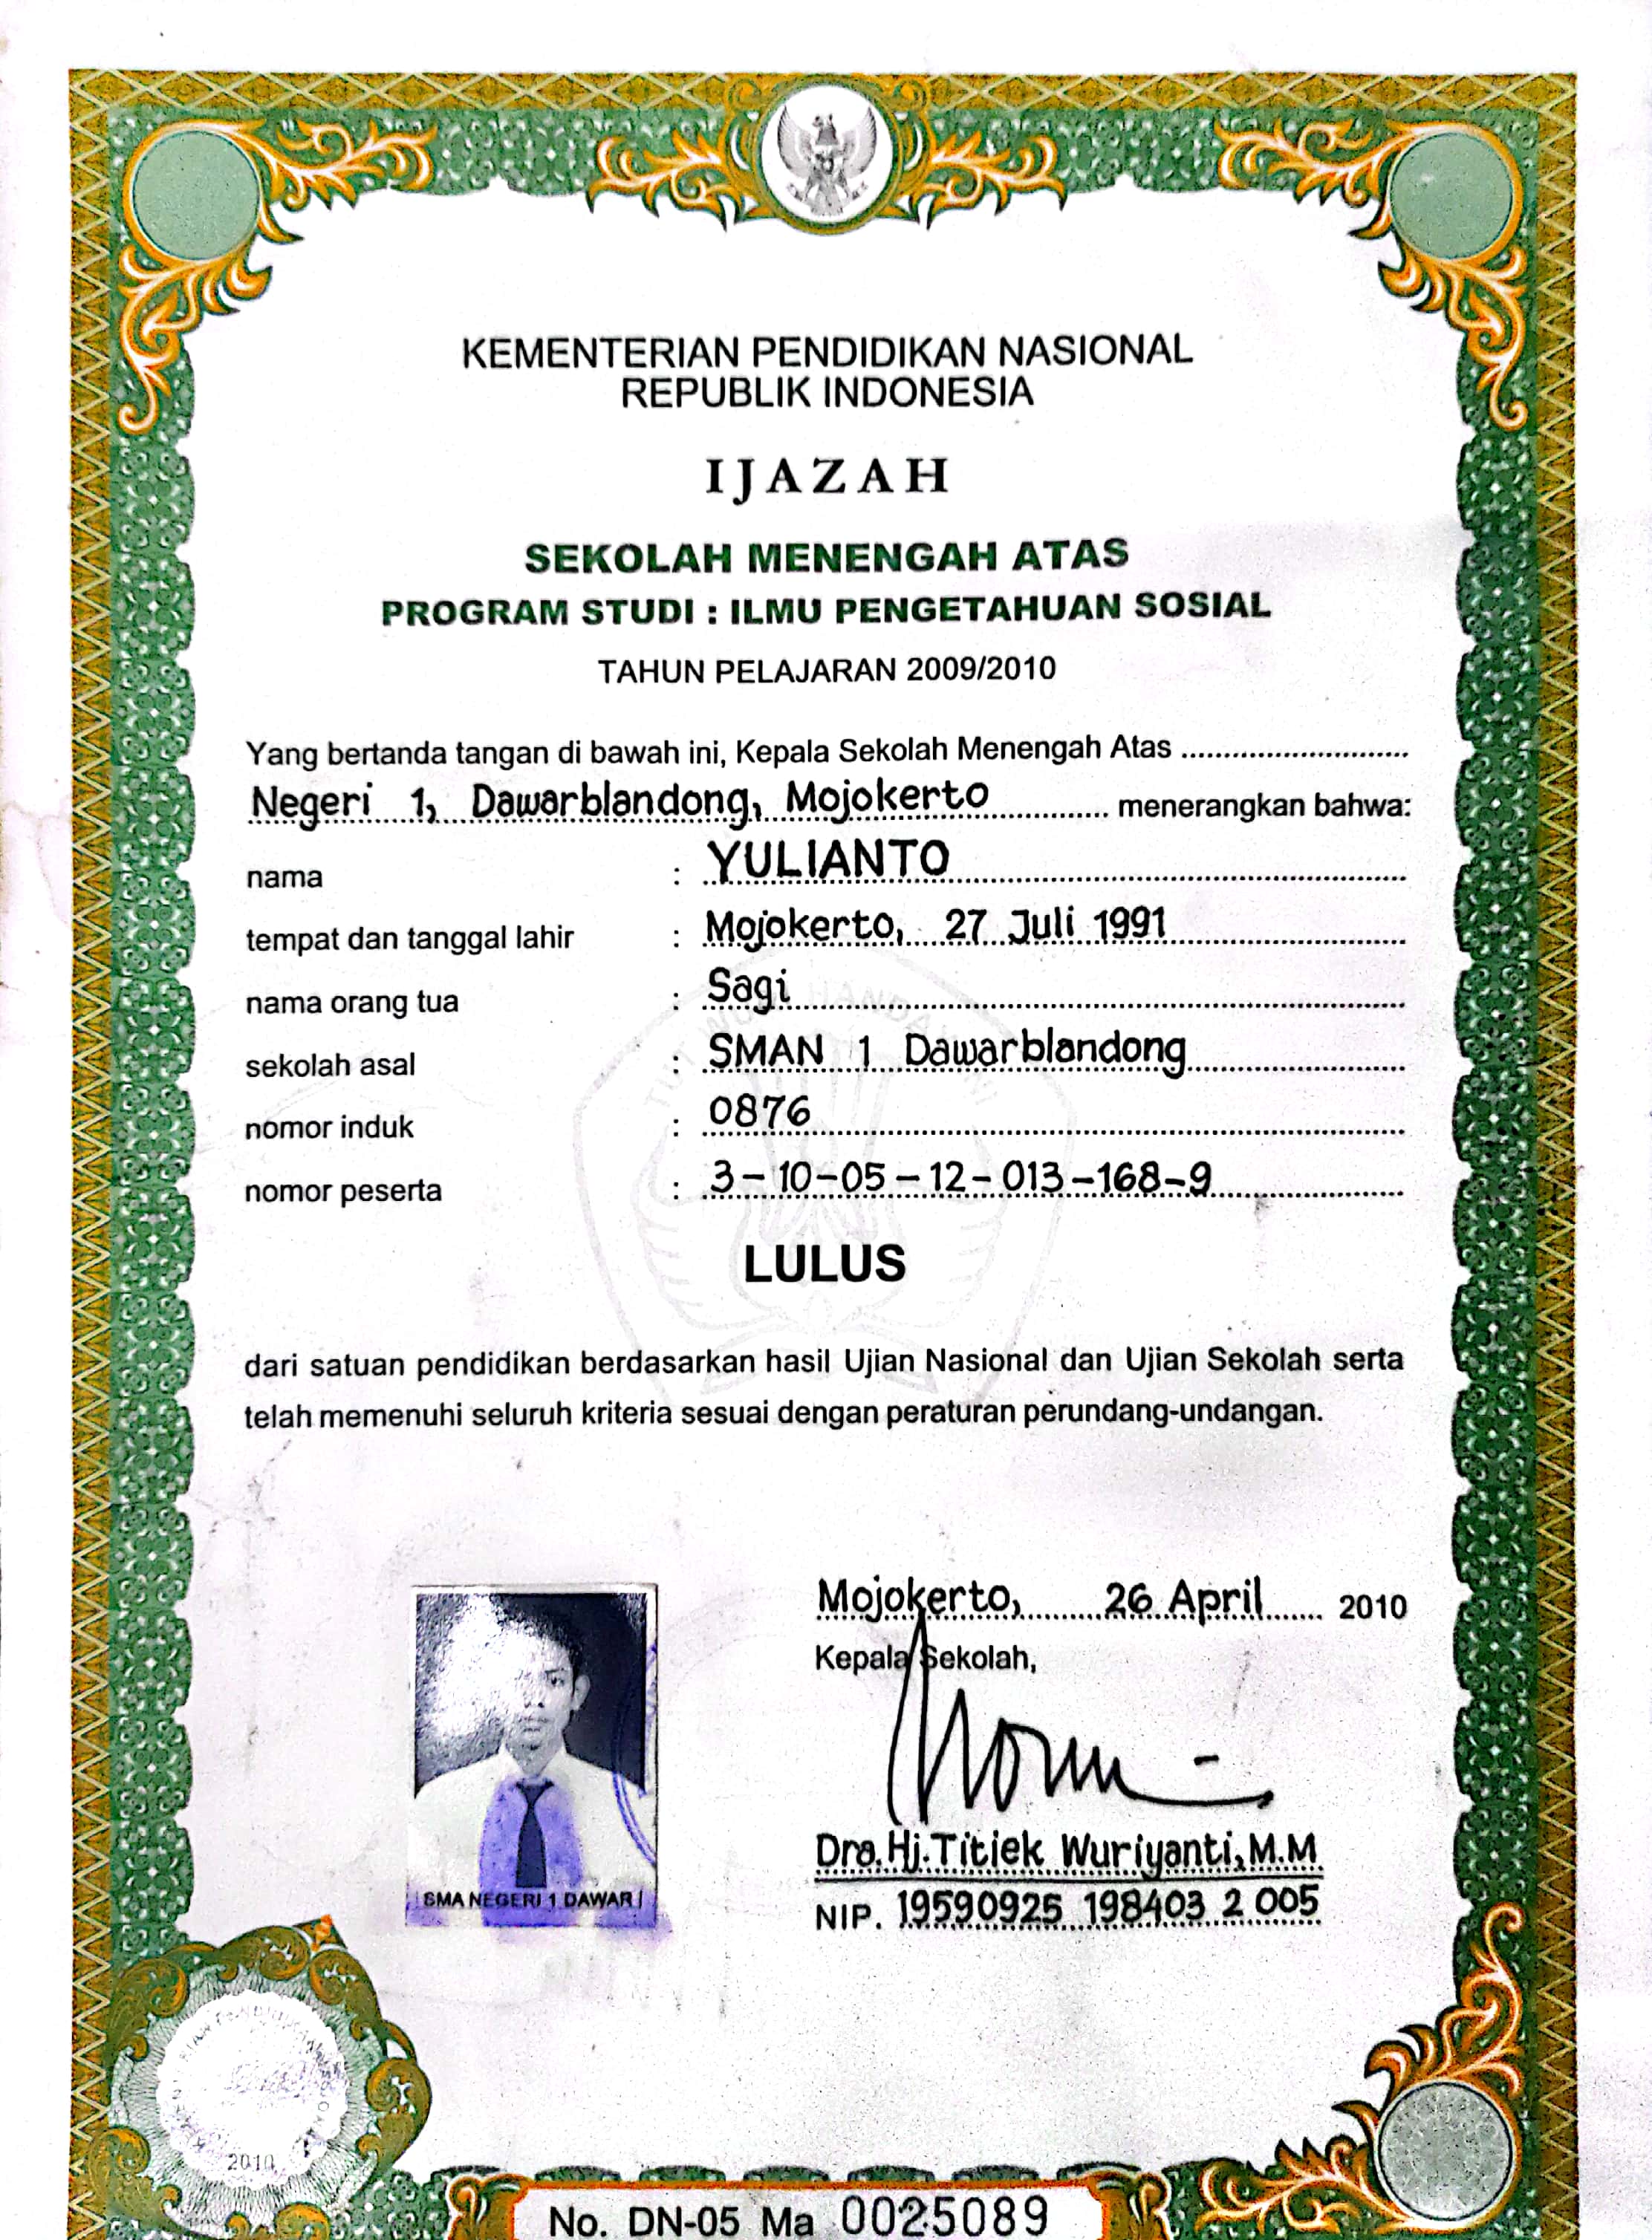 KEMENTERIAN PENDIDIKAN NASIONAL
REPUBLIK INDONESIA
IJAZAH
SEKOLAH MENENGAH ATAS
PROGRAM STUDI : ILMU PENGETAHUAN SOSIAL
TAHUN PELAJARAN 2009/2010
Yang bertanda tangan di bawah ini, Kepala Sekolah Menengah Atas
Negeri 1, Dawarblandong, Mojokerto menerangkan bahwa:
nama : YULIANTO
tempat dan tanggal lahir : Mojokerto, 27 Juli 1991
nama orang tua : Sagi
sekolah asal : SMAN 1 Dawarblandong
nomor induk : 0876
nomor peserta : 3-10-05-12-013-168-9
LULUS
dari satuan pendidikan berdasarkan hasil Ujian Nasional dan Ujian Sekolah serta
telah memenuhi seluruh kriteria sesuai dengan peraturan perundang-undangan.
Mojokerto, 26 April 2010
Kepala Sekolah,
Dra. Hj. Titiek Wuriyanti, M.M
NIP. 19590925 198403 2 005
SMA NEGERI 1 DAWAR
2010
No. DN-05 Ma 0025089